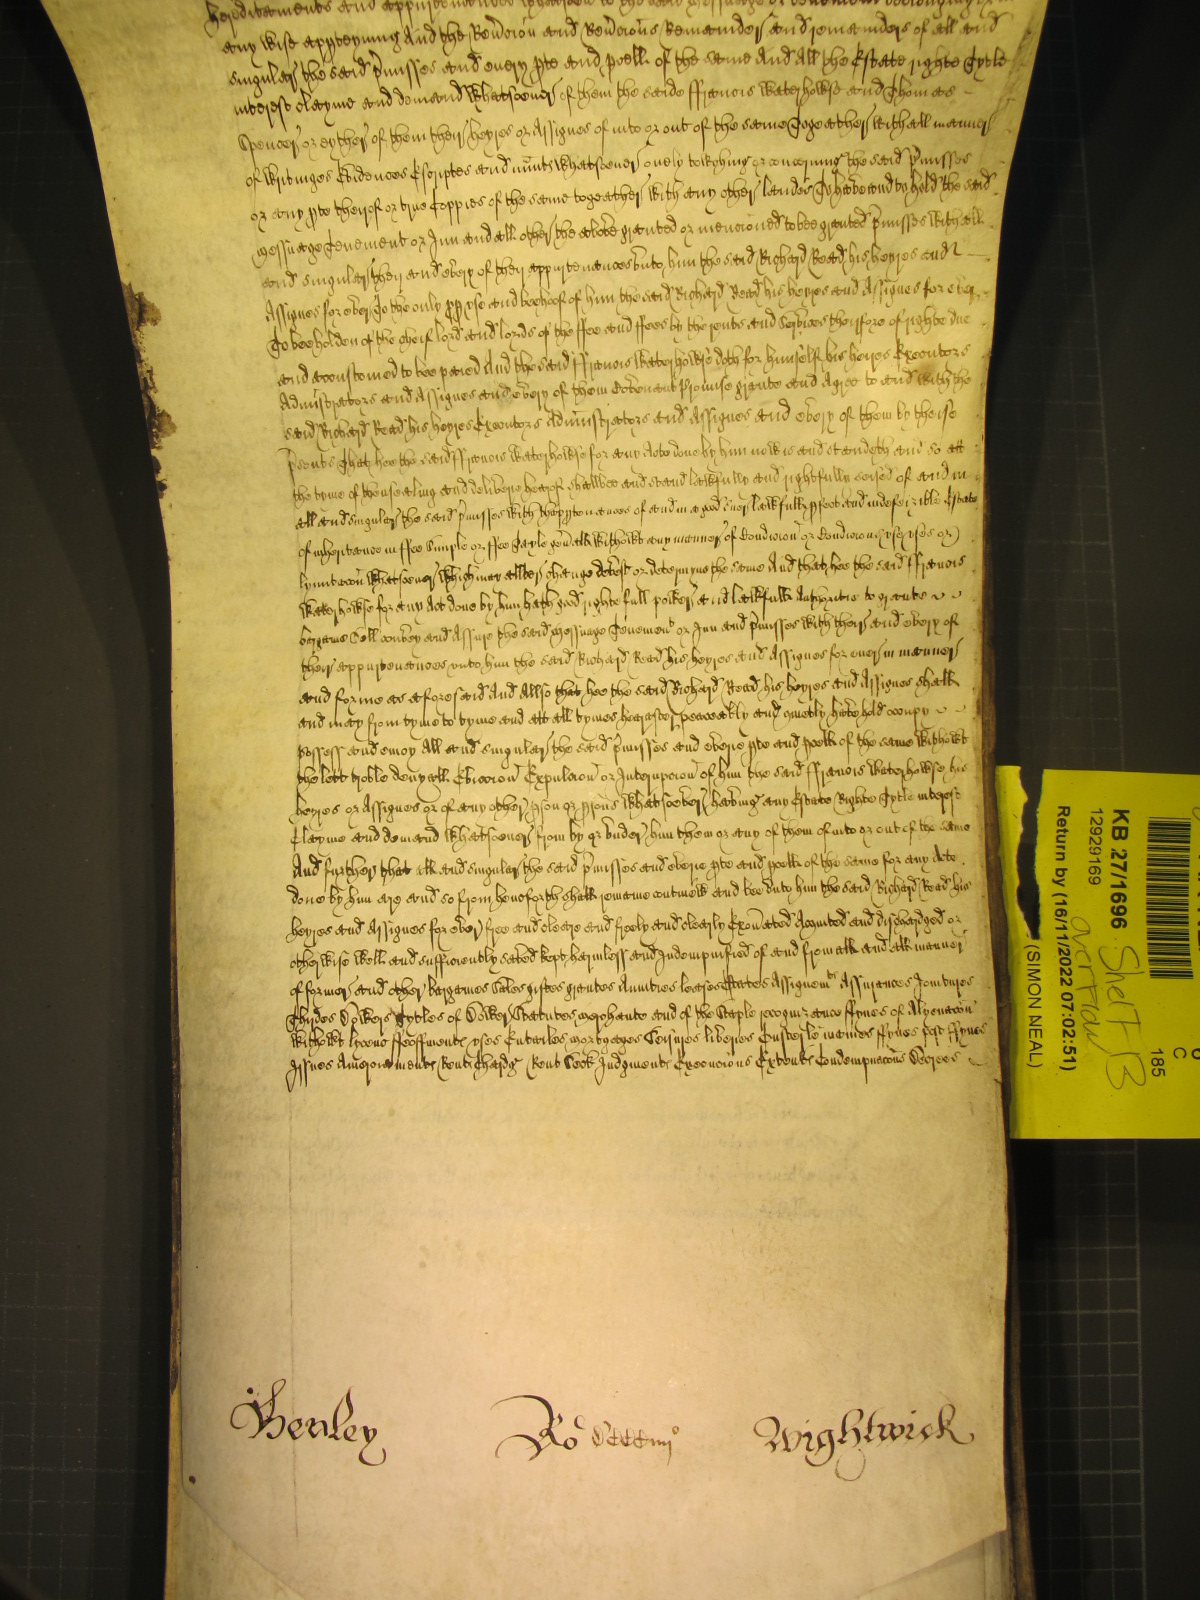 hereditaments and appurtenances whatsoev to the said messuage or tenement belonging or in
any wise apperteyning And the Revercion and Revercions Remainder and remainders of all and
singuler the said pmisses and every pte and pcell of the same And all the Estate righte Tytle
interest clayme and demand whatsoever of them the saide ffrancis Waterhowse and Thomas
Spencer or eyther of them their heyres or Assignes of into or out of the same Togeather with all manner
of writinges Evidences Escriptes and munts whatsoever onely towching or concerning the said pmisses
or any pte therof or true Coppies of the same togeather with any other landes To have and to hold the said
messuage Tenement or Inn and all other the above granted or mencioned to bee granted pmisses with all
and singuler their and every of their appurtenances unto him the said Richard Read his heyres and
Assignes for ever To the only pp use and behoof of him the said Richard Read his heyres and Assignes for ever
To bee holden of the cheif lord and lords of the ffee and ffees by the rents and Services therfore of righte due
and accustomed to bee paied And the said ffrancis Waterhowse doth for himself his heyres Executors
Administrators and Assignes and every of them Covenant Promise grante and Agree to and with the
said Richard Read his heyres Executors Administrators and Assignes and every of them by theise
psents That hee the said ffrancis Waterhowse for any Acte done by him now is and standeth and so att
the tyme of thensealing and deliverie hereof shallbee and stand lawfully and rightfully seised of and in
all and singuler the said pmisses with thapptenances of and in a good suer lawfull pfect and indefeizible Estate
of inheritance in ffee Simple or ffee Tayle genall without any manner of Condicion or Condicions use uses or
lymitacon whatsoever which may allter change defeat or determyne the same And that hee the said ffrancis
Waterhowse for any Act done by him hath good righte full power and lawfull Authoritie to grante
bargaine Sell convey and Assure the said Messuage Tenement or Inn and pmisses with their and every of
their appurtenances unto him the said Richard Read his heyres and Assignes for ever in manner
and forme as aforesaid And Allso that hee the said Richard Read his heyres and Assignes shall
and may from tyme to tyme and att all tymes hereafter peaceably and quietly have hold occupy
possess and enioy All and singuler the said pmisses and everie pte and pcell of the same without
the lett troble denyall Eviccion Expulcion or Interupcion of him the said ffrancis Waterhowse his
heyres or Assignes or of any other pson or psons whatsoever having any Estate Righte Tytle interest
Clayme and demand whatsoever from by or under him them or any of them of into or out of the same
And further that all and singuler the said pmisses and everie pte and pcell of the same for any Acte
done by him are and so from henceforth shall remaine continew and bee unto him the said Richard Read his
heyres and Assignes for ever free and cleare and freely and clearly Exonated Acquited and dischardged or
otherwise well and sufficiently saved kept harmless and Indempnified of and from all and all manner
of former and other bargaines Sales giftes grantes Annities leases Estates Assignemts Assurances Joyntures
Thirdes Dowers Tytles of Dower Statutes merchante and of the Staple recognizance ffynes of Alyenacon
without lycence ffeoffments uses Entailes mortgages Seisures liveries Ousterle maines ffynes post ffynes
Issues Amerciaments Rent Chardg Rent Seck Judgments Execucions Extents Condempnacons Decrees
Henley Ro CCCCiiijo Wightwick
KB 27/1696
12929169
Return by (16/11/2022 07:02:51)
(SIMON NEAL)
Shelf B
overflow
185
C